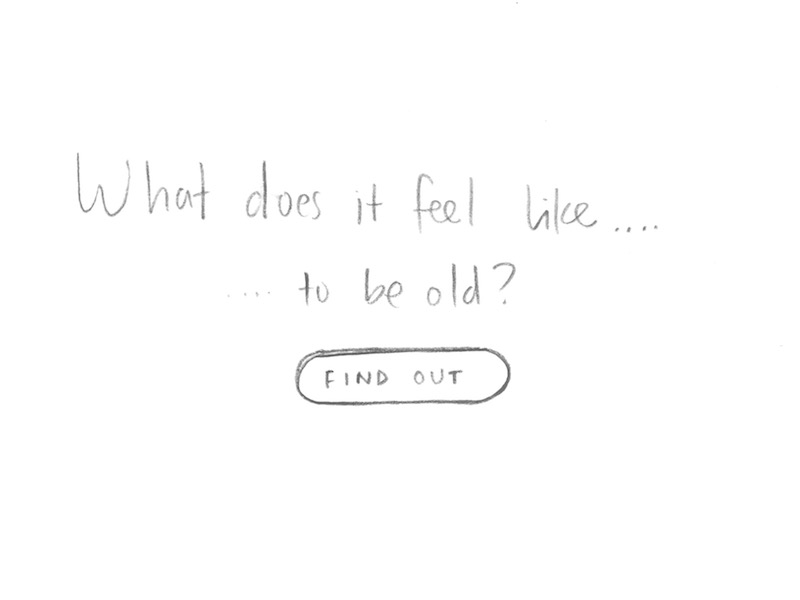 What does it feel like....
.... to be old?
FIND OUT